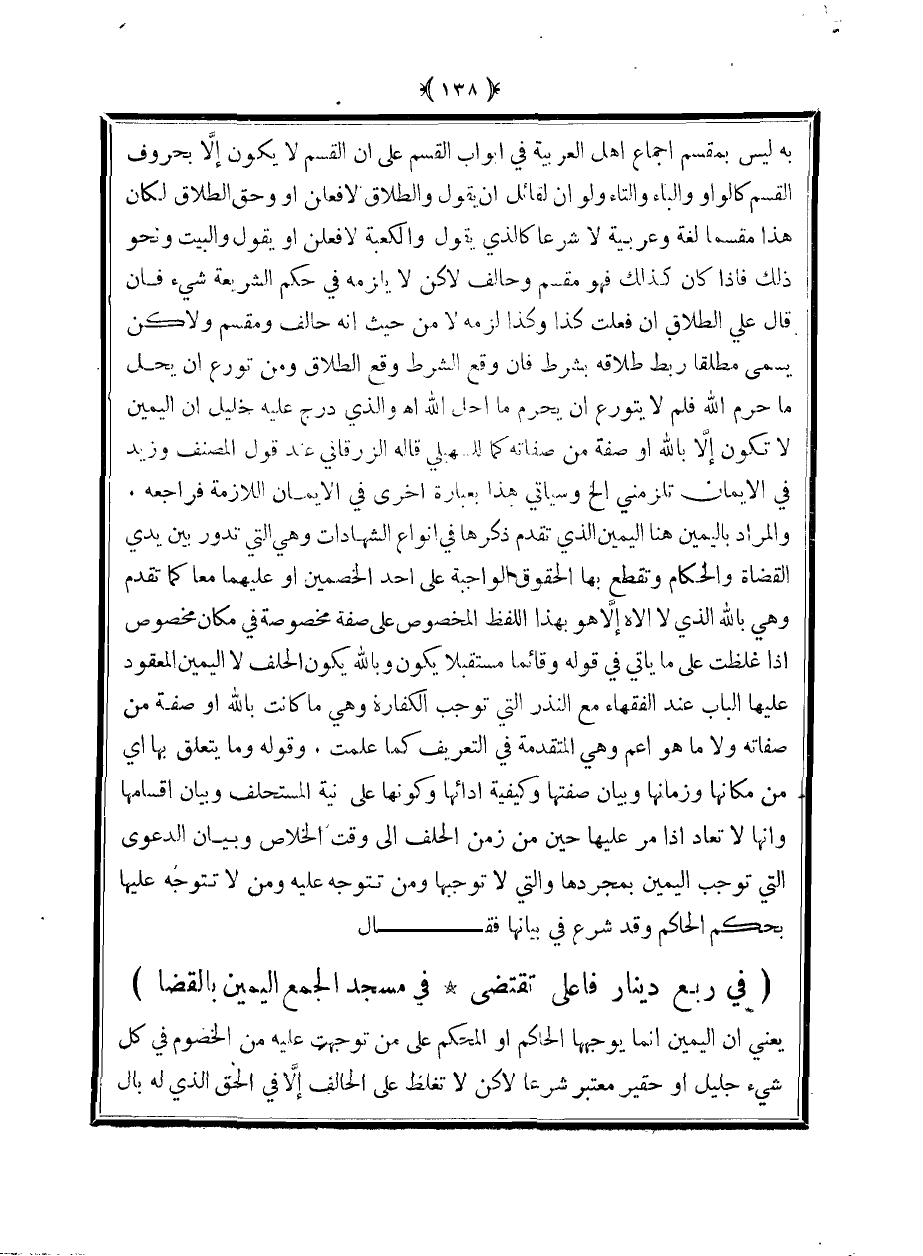 ﴿ ١٣٨ ﴾
به ليس بمقسم اجماع اهل العربية في ابواب القسم على ان القسم لا يكون إلَّا بحروف
القسم كالواو والباء والتاء ولو ان لقائل ان يقول والطلاق لافعلن او وحق الطلاق لكان
هذا مقسما لغة وعربية لا شرعا كالذي يقول والكعبة لافعلن او يقول والبيت ونحو
ذلك فاذا كان كذلك فهو مقسم وحالف لاكن لا يلزمه في حكم الشريعة شيء فان
قال علي الطلاق ان فعلت كذا وكذا لزمه لا من حيث انه حالف ومقسم ولاكن
يسمى مطلقا ربط طلاقه بشرط فان وقع الشرط وقع الطلاق ومن تورع ان يحل
ما حرم الله فلم لا يتورع ان يحرم ما احل الله اه والذي درج عليه خليل ان اليمين
لا تكون إلَّا بالله او صفة من صفاته كما للسهيلي قاله الزرقاني عند قول المصنف وزيد
في الايمان تلزمني الخ وسياتي هذا بعبارة اخرى في الايمان اللازمة فراجعه .
والمراد باليمين هنا اليمين الذي تقدم ذكرها في انواع الشهادات وهي التي تدور بين يدي
القضاة والحكام وتقطع بها الحقوق الواجبة على احد الخصمين او عليهما معا كما تقدم
وهي بالله الذي لا الاه إلَّا هو بهذا اللفظ المخصوص على صفة مخصوصة في مكان مخصوص
اذا غلظت على ما ياتي في قوله وقائما مستقبلا يكون وبالله يكون الحلف لا اليمين المعقود
عليها الباب عند الفقهاء مع النذر التي توجب الكفارة وهي ما كانت بالله او صفة من
صفاته ولا ما هو اعم وهي المتقدمة في التعريف كما علمت . وقوله وما يتعلق بها اي
من مكانها وزمانها وبيان صفتها وكيفية ادائها وكونها على نية المستحلف وبيان اقسامها
وانها لا تعاد اذا مر عليها حين من زمن الحلف الى وقت الخلاص وبيان الدعوى
التي توجب اليمين بمجردها والتي لا توجبها ومن تتوجه عليه ومن لا تتوجه عليها
بحكم الحاكم وقد شرع في بيانها فقـــال
( في ربع دينار فاعلى تقتضى * في مسجد الجمع اليمين بالقضا )
يعني ان اليمين انما يوجهها الحاكم او المحكم على من توجهت عليه من الخصوم في كل
شيء جليل او حقير معتبر شرعا لاكن لا تغلظ على الحالف إلَّا في الحق الذي له بال